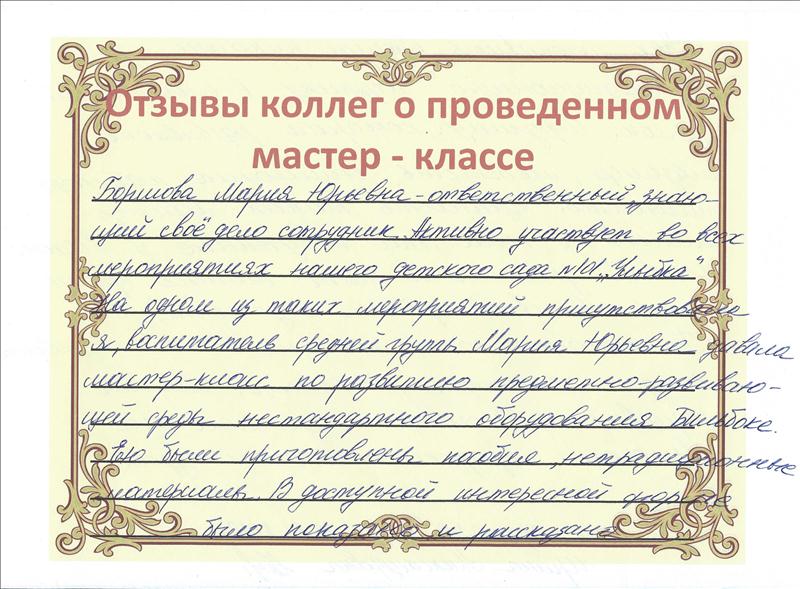 Отзывы коллег о проведенном
мастер - классе
Боршова Мария Юрьевна - ответственный, знаю-
щий своё дело сотрудник. Активно участвует во всех
мероприятиях нашего детского сада №101 „Улыбка"
На одном из таких мероприятий присутствовала
я, воспитатель средней групы. Мария Юрьевна давала
мастер-класс по развитию предметно-развиваю-
щей среды нестандартного оборудования Бильбоке.
Ею были приготовлены пособия, нетрадиционные
материалы. В доступной интересной форме
было показано и рассказано